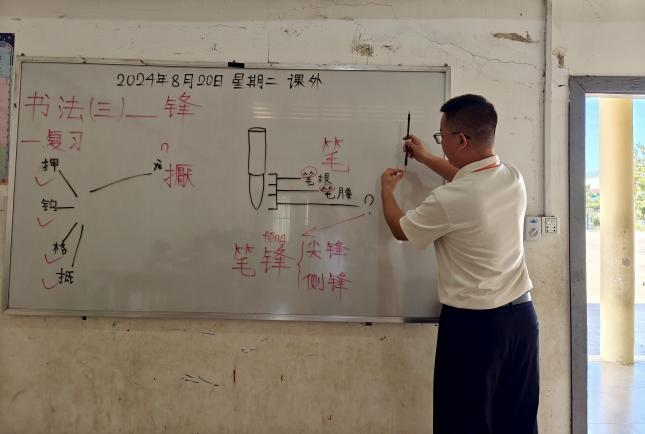 2024年8月20日 星期二 课外
书法(三)__ 锋
一复习
押
钩
格
抵
?
擫
笔
笔根
笔腰
?
fēng
笔锋
尖锋
侧锋